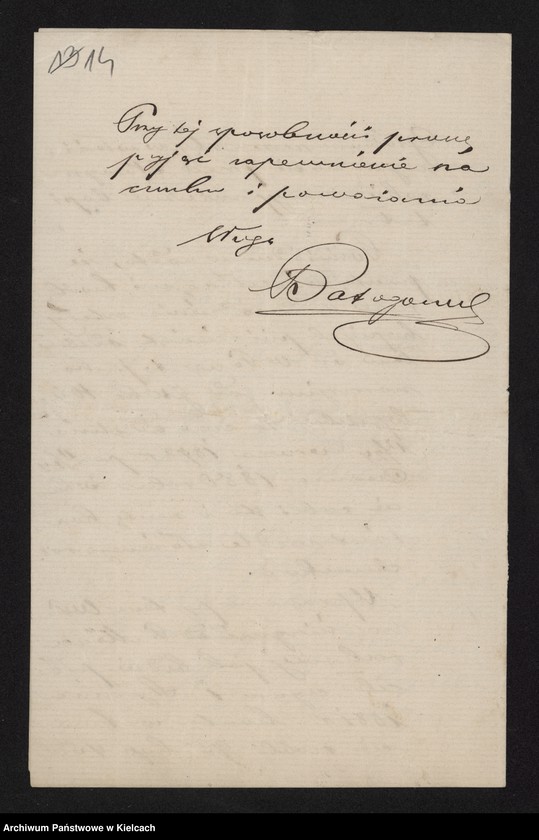 14
Przy tej sposobności proszę
przyjąć zapewnienie sza
cunku i poważania
Sługa
Archiwum Państwowe w Kielcach